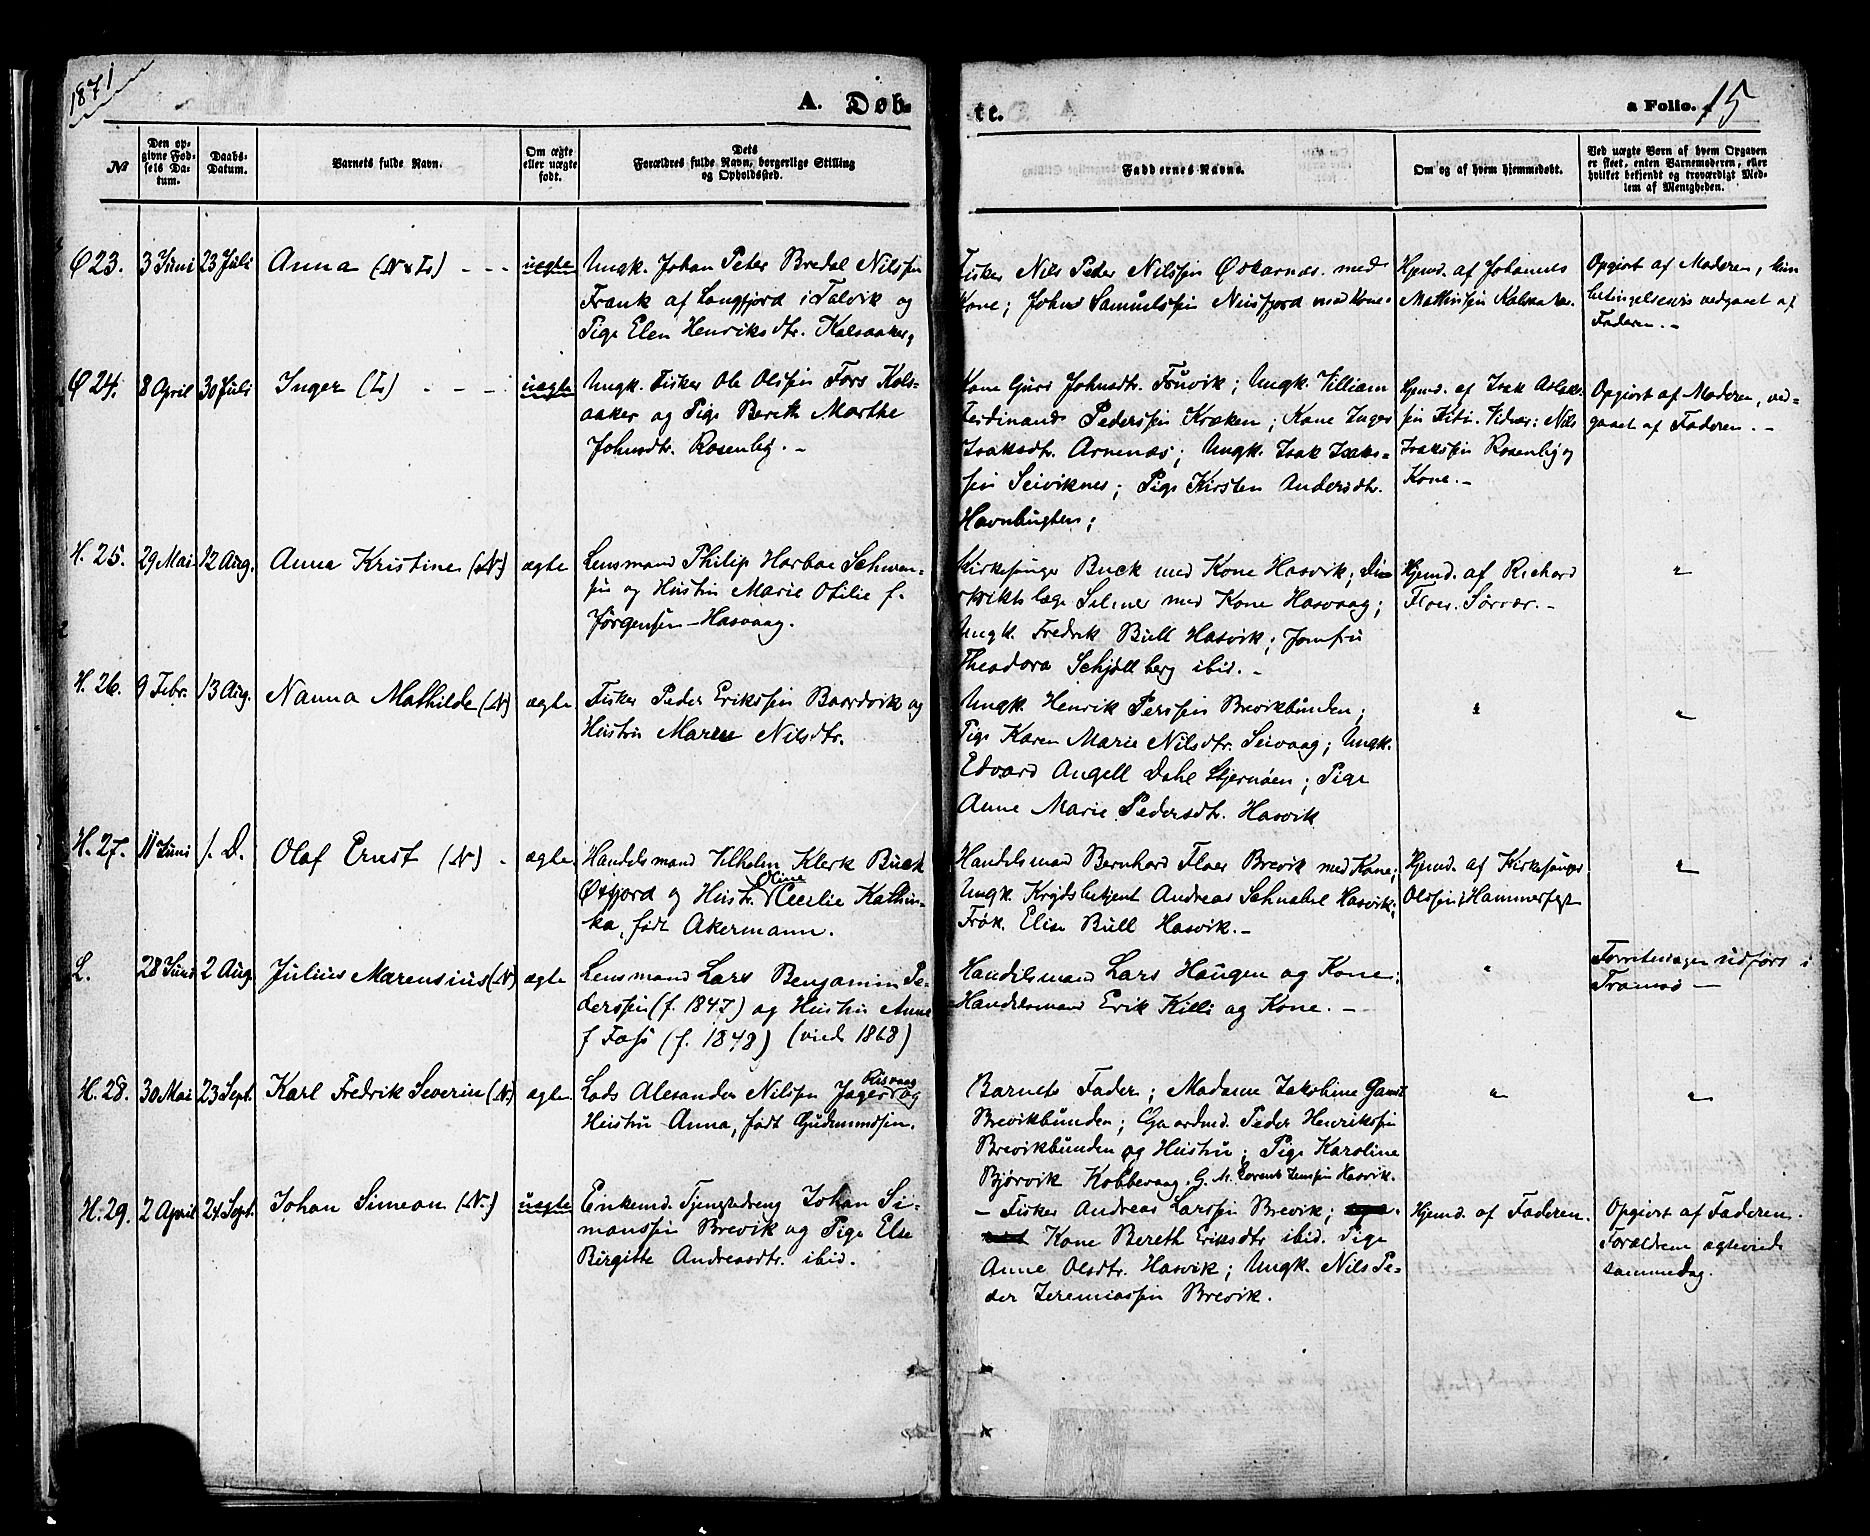 1871
A. Døb-
te.
a Folio. 15
№
Den op-
givne Fød-
sels Da-
tum.
Daabs-
Datum.
Barnets fulde Navn.
Om ægte
eller uægte
født.
Dets
Forældres fulde Navn, borgerlige Stilling
og Opholdssted.
Faddernes Navne.
Om og af hvem hjemmedøbt.
Ved uægte Børn af hvem Opgaven
er skeet, enten Barnemoderen, eller
hvilket bekjendt og troværdigt Med-
lem af Menigheden.
Ø 23.
3 Juni
23 Juli
Anna (N & L) - - -
uægte
Ungk. Johan Peter Bredal Nilssen
Frank af Langfjord i Talvik og
Pige Elen Henriksdtr. Kalsaaker,
Fisker Nils Peder Nilssen Øskarnæs. med
Kone; Johns Samuelssen Nuisfjord med Kone.
Hjmd. af Johannes
Mathissen
Opgivet af Moderen, kun
betingelsesvis vedgaaet af
Faderen. -
Ø 24.
8 April
30 Juli
Inger (L) - - -
uægte
Ungk. Fisker Ole Olssen Fors Kols-
aaker og Pige Berith Marthe
Johnsdtr. Rosenlig. -
Kone Guro Johnsdtr. Finvik; Ungk. Villiam
Ferdinand Pederssen Kraken; Kone Inger
Isaksdtr. Arnenæs; Ungk. Isak Isaks-
sen Seiviknes; Pige Kirsten Andersdtr.
Havnbugten;
Hjmd. af Isak Aslak-
sen Nils
Isakssen Rosenlig og
Kone. -
Opgivet af Moderen, ved-
gaaet af Faderen. -
H. 25.
29 Mai
12 Aug.
Anna Kristine (N)
ægte
Lensmand Philip Harboe Schwen-
sen og Hustru Marie Otilie f.
Jörgensen - Hasvaag.
Kirkesanger Buck med Kone Hasvik; Di-
striktslæge Selmer med Kone Hasvaag;
Ungk. Fredrik Bull Hasvik; Jomfru
Theodora Schjøll berg ibid. -
Hjmd. af Richard
Floer. Sörvær. -
"
H. 26.
9 Febr.
13 Aug.
Nanna Mathilde (N)
ægte
Fisker Peder Erikssen Baardvik og
Hustru Maren Nilsdtr.
Ungk. Henrik Perssen Brevikbunden;
Pige Karen Marie Nilsdtr. Seivaag; Ungk.
Edvard Angell Dahl Stjernöen; Pige
Anne Marie Pedersdtr. Hasvik
"
"
H. 27.
11 Juni
s. D.
Olaf Ernst (N) -
ægte
Handelsmand Vilhelm Klerk Buck
Øxfjord og Hustr. Oline Cecilie Kathin-
ka, født Akermann.
Handelsmand Bernhard Floer Brevik med Kone;
Ungk. Krydsbetjent Andreas Schnabel Hasvik;
Frøk. Elise Bull Hasvik. -
Hjmd. af Kirkesanger
Olssen i Hammerfest
"
L.
28 Juni
2 Aug.
Julius Marensius (N)
ægte
Lensmand Lars Benjamin Pe-
derssen (f. 1847) og Hustru Anne
f Fossö (f. 1848) (viede 1868)
Handelsmand Lars Haugen og Kone;
Handelsmand Erik Killi og Kone. -
"
Forretningen udført i
Tromsø -
H. 28.
30 Mai
23 Sept.
Karl Fredrik Severin (N)
ægte
Lods Alexander Nilssen Jager Risvaag og
Hustru Anna, født Gudmundsen.
Barnets Fader; Madame Jakobine Gamst
Brevikbunden; Gaardmd. Peder Henrikssen
Brevikbunden og Hustru; Pige Karoline
Bjørvik Kobbevaag. G. M. Lorents Jenssen Hasvik.
"
"
H. 29.
2 April
24 Sept.
Johan Simeon (N.)
uægte
Enkemd. Tjenestedreng Johan Si-
monssen Brevik og Pige Else
Birgitte Andreasdtr. ibid.
- Fisker Andreas Larssen Brevik;
Kone Bereth Eriksdtr ibid. Pige
Anne Olsdtr. Hasvik; Ungk. Nils Pe-
der Jeremiassen Brevik.
Hjmd. af Faderen.
Opgivet af Faderen.
Forældrene ægteviede
sammedag.